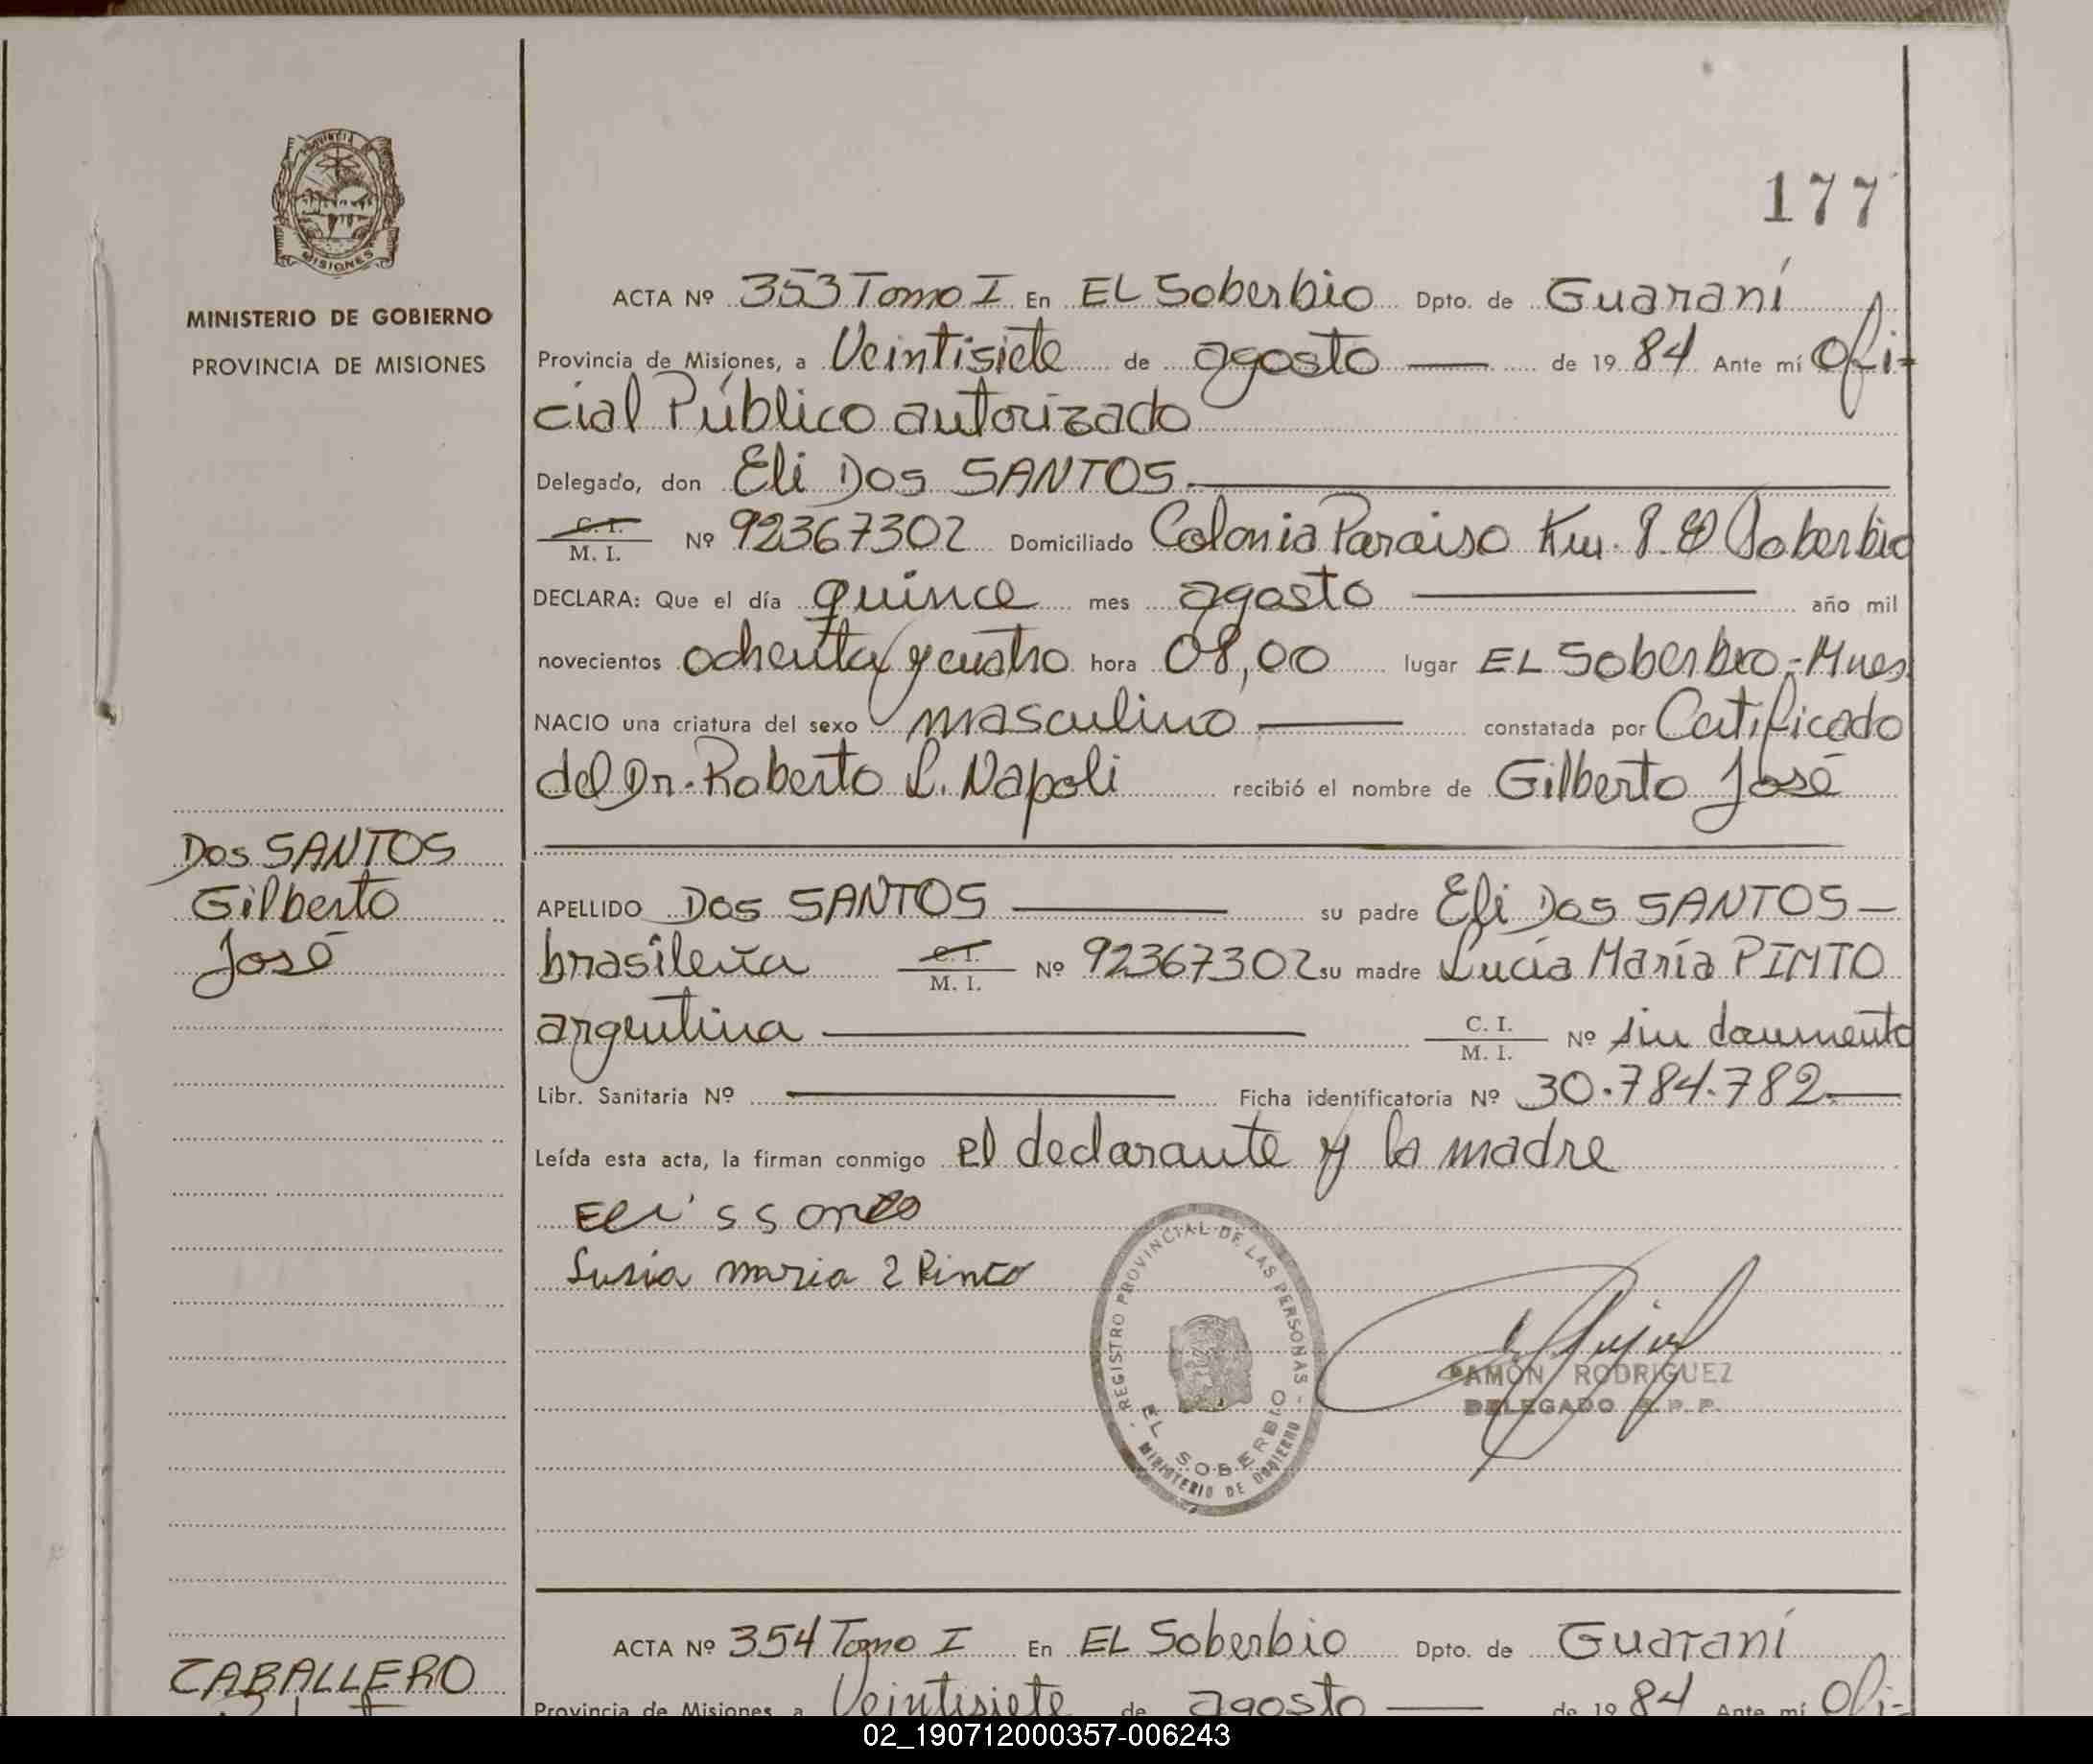 PROVINCIA DE
MISIONES
MINISTERIO DE GOBIERNO
PROVINCIA DE MISIONES
177
ACTA Nº 353 Tomo I En EL Soberbio Dpto. de Guaraní
Provincia de Misiones, a Veintisiete de agosto — de 19 84 Ante mí Ofi-
cial Público autorizado
Delegado, don Eli Dos SANTOS
C. I. / M. I. Nº 92367302 Domiciliado Colonia Paraiso Km. 8. El Soberbio
DECLARA: Que el día quince mes agosto — año mil
novecientos ochenta y cuatro hora 08,00 lugar EL Soberbio,-Mnes.
NACIO una criatura del sexo masculino — constatada por Certificado
del Dr. Roberto L. Napoli recibió el nombre de Gilberto José
Dos SANTOS
Gilberto
José
APELLIDO Dos SANTOS — su padre Eli Dos SANTOS —
brasileña C. I. / M. I. Nº 92367302 su madre Lucía María PINTO
argentina — C. I. / M. I. Nº sin documento
Libr. Sanitaria Nº — Ficha identificatoria Nº 30.784.782.—
Leída esta acta, la firman conmigo el declarante y la madre
Susia maria 2 Pinto
REGISTRO PROVINCIAL DE LAS PERSONAS -
EL SOBERBIO
MINISTERIO DE GOBIERNO
RAMÓN RODRIGUEZ
DELEGADO R. P. P.
ACTA Nº 354 Tomo I En EL Soberbio Dpto. de Guaraní
CABALLERO
Provincia de Misiones, a Veintisiete de agosto — de 19 84 Ante mí Ofi-
02_190712000357-006243